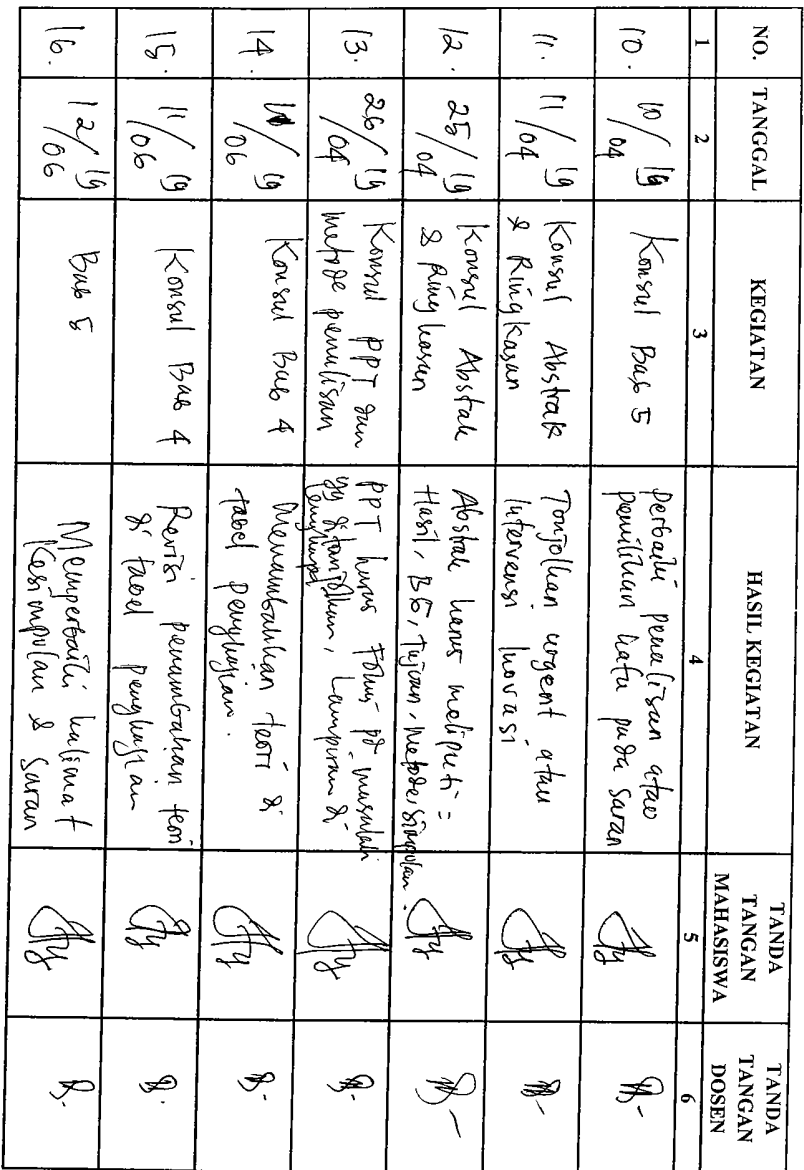 NO. TANGGAL KEGIATAN HASIL KEGIATAN TANDA TANGAN MAHASISWA TANDA TANGAN DOSEN
1 2 3 4 5 6
10. 10/04 19 Konsul Bab 5 perbaiki penulisan atau
pemilihan kata pada saran
11. 11/04 19 Konsul Abstrak Tonjolkan urgent atau
& Ringkasan Intervensi Inovasi
12. 25/04 19 Konsul Abstak Abstak harus meliputi :
& Ringkasan Hasil, BG, Tujuan, Metode, Simpulan.
13. 26/04 19 Konsul PPT dan PPT harus fokus pd masalah
metode penulisan yg ditonjolkan, Lampiran di
Lengkapi
14. /06 19 Konsul Bab 4 Menambahkan teori di
tabel pengkajian.
15. 11/06 19 Konsul Bab 4 Revisi penambahan teori
di tabel pengkajian
16. 12/06 19 Bab 5 Memperbaiki kalimat
Kesimpulan & Saran